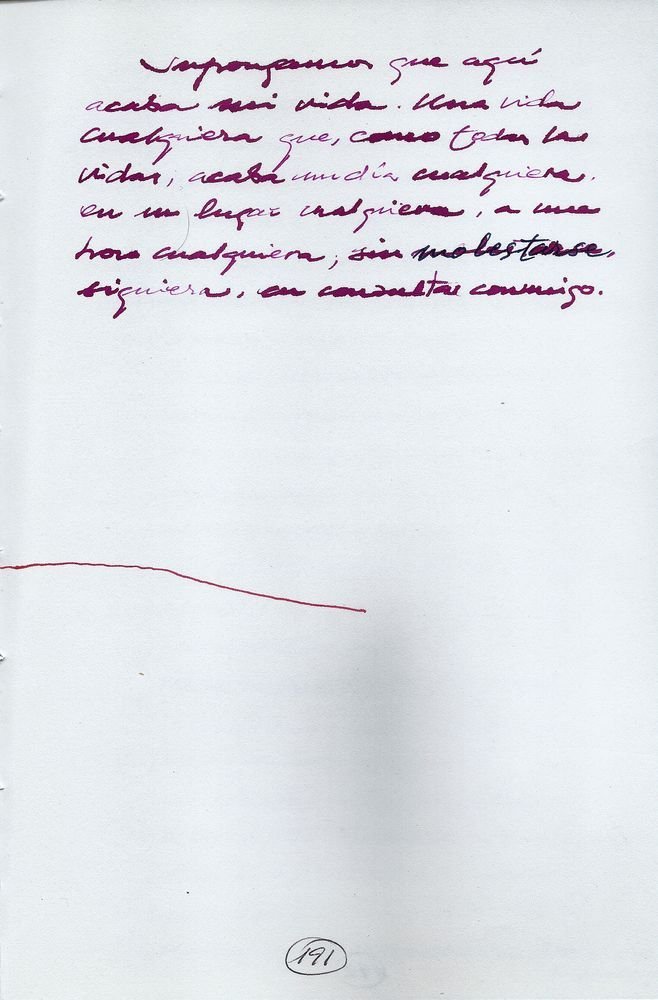 Supongamos que aquí
acaba mi vida. Una vida
cualquiera que, como todas las
vidas, acaba un día cualquiera,
en un lugar cualquiera, a una
hora cualquiera, sin molestarse,
siquiera, en consultar conmigo.
191